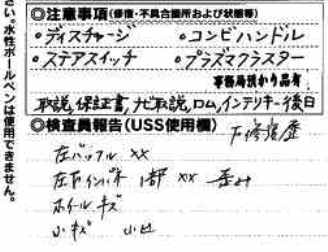 さい。水性ボールペンは使用できません。
◎注意事項(修復・不具合箇所および状態等)
・ディスチャージ ・コンビハンドル
・ステアスイッチ ・プラズマクラスター
事務局預かり品有
取説,保証書,ナビ取説,ロム,インテリキー後日
◎検査員報告(USS使用欄) 下修復歴
左バッフル XX
左下インパネ 1部 XX
ホイールキズ
小キズ 小凹